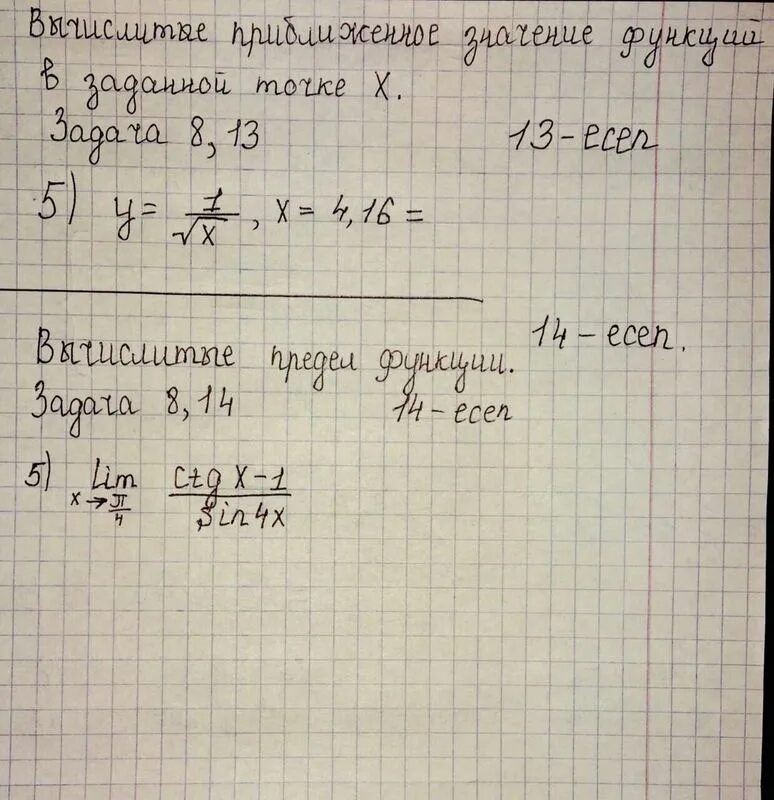 Вычислитые приближенное значение функций
в заданной точке X.
Задача 8, 13 13-есеп
5) y= 1/√x , x = 4,16 =
14-есеп.
Вычислитые предел функции.
Задача 8, 14 14-есеп
5) Lim x→π/4 ctg x-1 / Sin4x